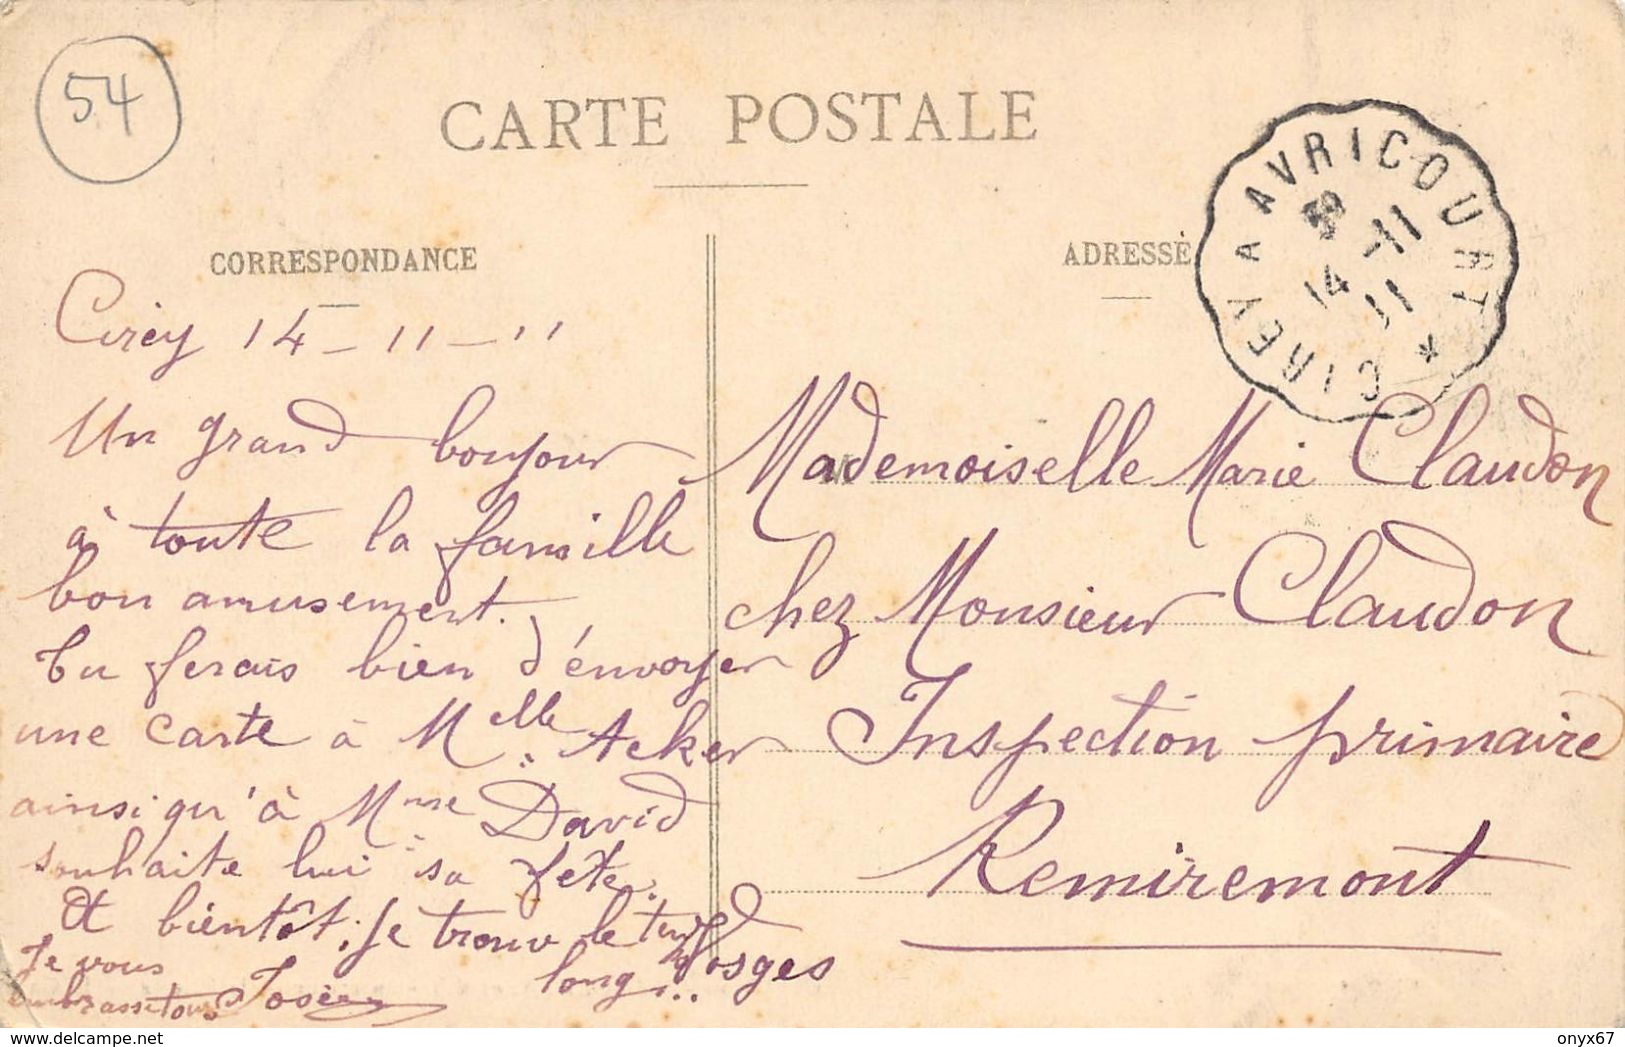 54
CARTE POSTALE
CORRESPONDANCE
ADRESSE
CIREY A AVRICOURT *
14 -11
11
Cirey 14 - 11 - 11
Un grand bonjour
à toute la famille
bon amusement.
Tu ferais bien d'envoyer
une carte à Melle Acker
ainsi qu'à Mme David
souhaite lui sa fête.
A bientôt, je trouve le
long...
Je vous
embrasse tous
Mademoiselle Marie Claudon
chez Monsieur Claudon
Inspection primaire
Remiremont
Vosges
delcampe.net
onyx67